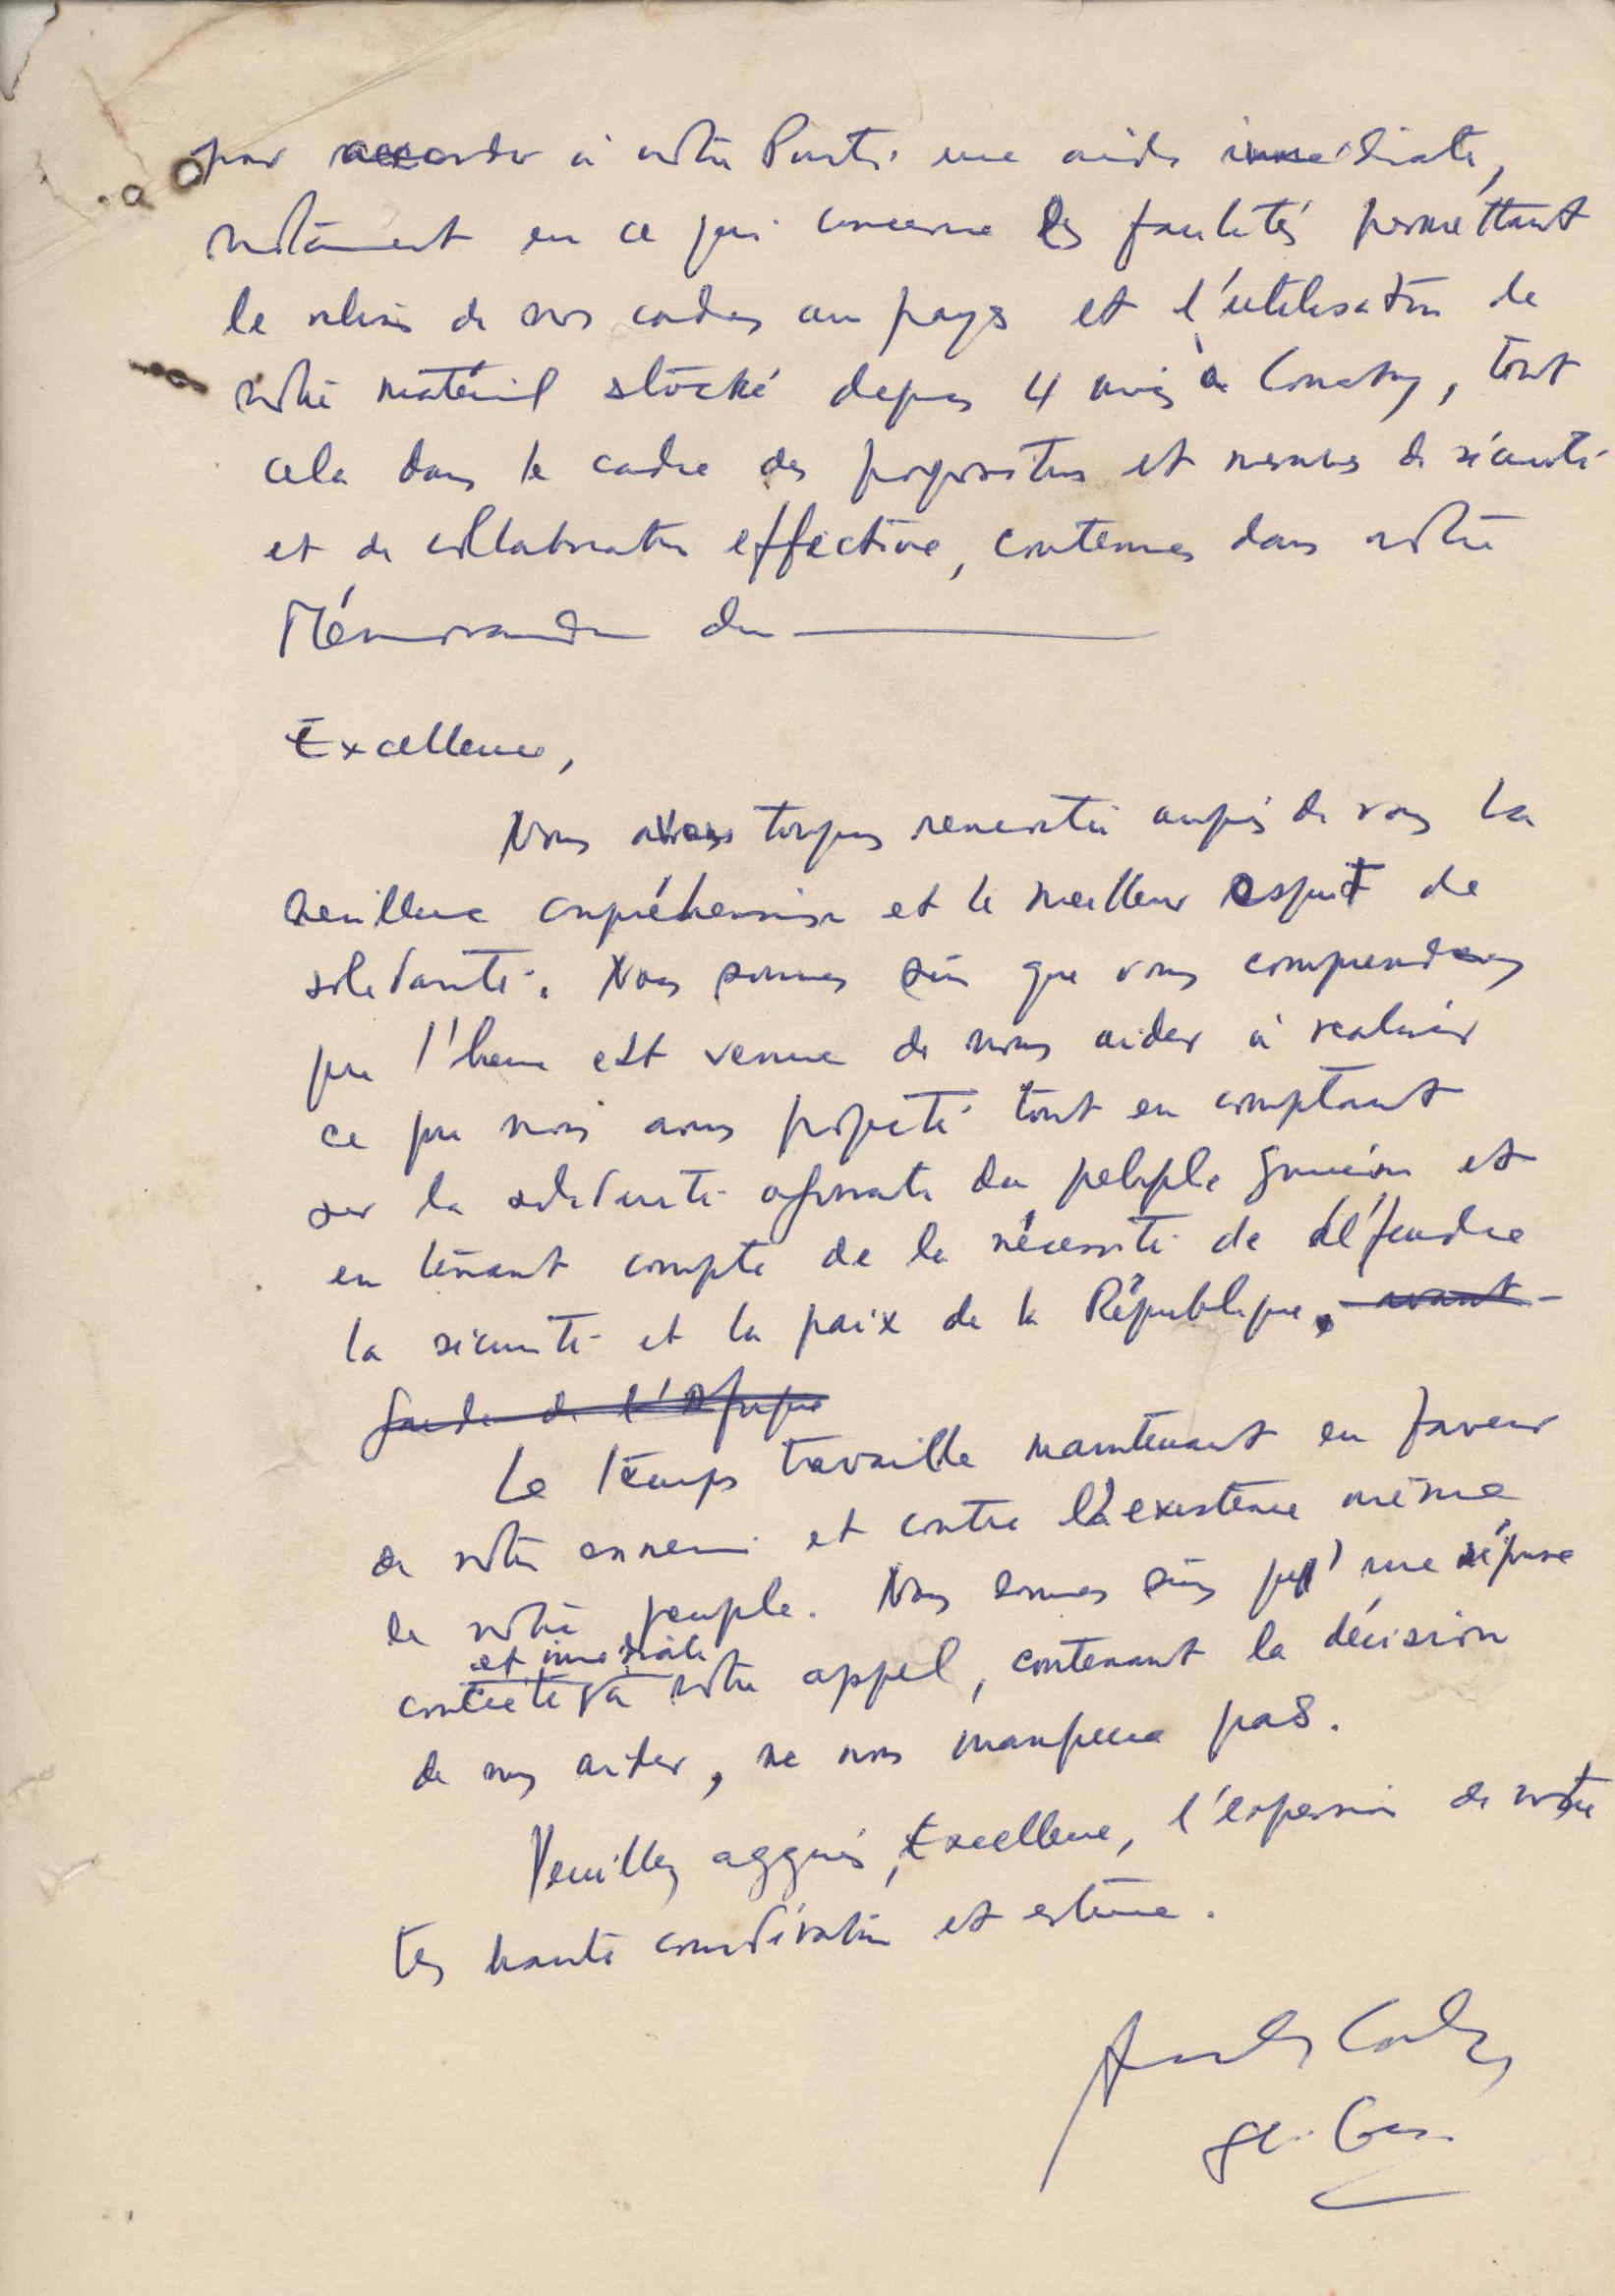 pour accorder à notre Parti une aide immédiate,
notamment en ce qui concerne les facilités permettant
le de nos cadres au pays et l'utilisation de
notre matériel stocké depuis 4 mois à Conakry, tout
cela dans le cadre des propositions et mesures de sécurité
et de collaboration effective, contenues dans notre
Mémorandum du
Excellence,
Nous avons toujours rencontré auprès de vous la
meilleure compréhension et le meilleur esprit de
solidarité. Nous sommes sûrs que vous comprendrez
que l'heure est venue de nous aider à realiser
ce que nous avons projeté tout en comptant
sur la solidarité agissante du peuple guinéen et
en tenant compte de la nécessité de défendre
la sécurité et la paix de la République, avant
garde de l'Afrique
Le temps travaille maintenant en faveur
de notre ennemi et contre l'existence même
de notre peuple. Nous sommes sûrs qu'une réponse
et immédiate
concrète à notre appel, contenant la décision
de nous aider, ne nous manquera pas.
Veuillez aggréer, Excellence, l'expression de notre
très haute considération et estime.
Amilcar Cabral